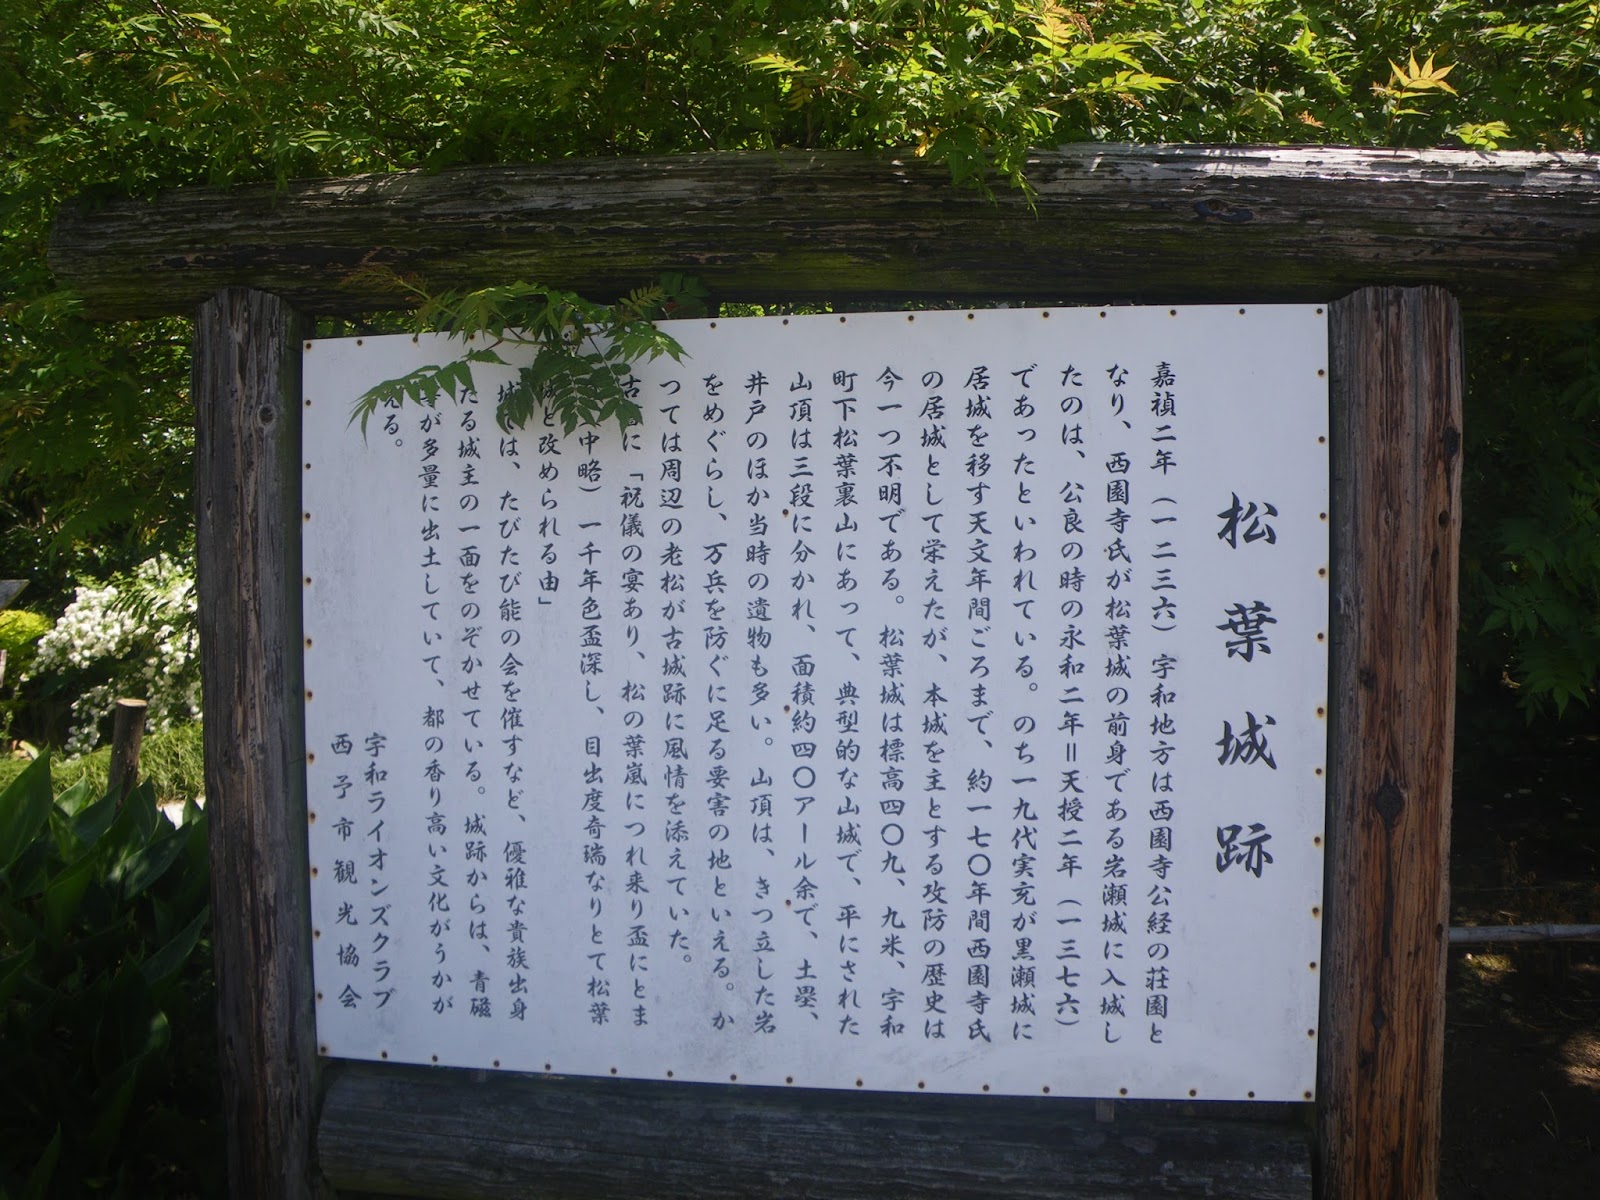 松葉城跡
嘉禎二年（一二三六）宇和地方は西園寺公経の荘園と
なり、西園寺氏が松葉城の前身である岩瀬城に入城し
たのは、公良の時の永和二年＝天授二年（一三七六）
であったといわれている。のち一九代実充が黒瀬城に
居城を移す天文年間ごろまで、約一七〇年間西園寺氏
の居城として栄えたが、本城を主とする攻防の歴史は
今一つ不明である。松葉城は標高四〇九、九米、宇和
町下松葉裏山にあって、典型的な山城で、平にされた
山頂は三段に分かれ、面積約四〇アール余で、土塁、
井戸のほか当時の遺物も多い。山頂は、きつ立した岩
をめぐらし、万兵を防ぐに足る要害の地といえる。か
つては周辺の老松が古城跡に風情を添えていた。
古 に「祝儀の宴あり、松の葉嵐につれ来り盃にとま
中略）一千年色盃深し、目出度奇瑞なりとて松葉
城と改められる由」
城 は、たびたび能の会を催すなど、優雅な貴族出身
たる城主の一面をのぞかせている。城跡からは、青磁
が多量に出土していて、都の香り高い文化がうかが
える。
宇和ライオンズクラブ
西予市観光協会